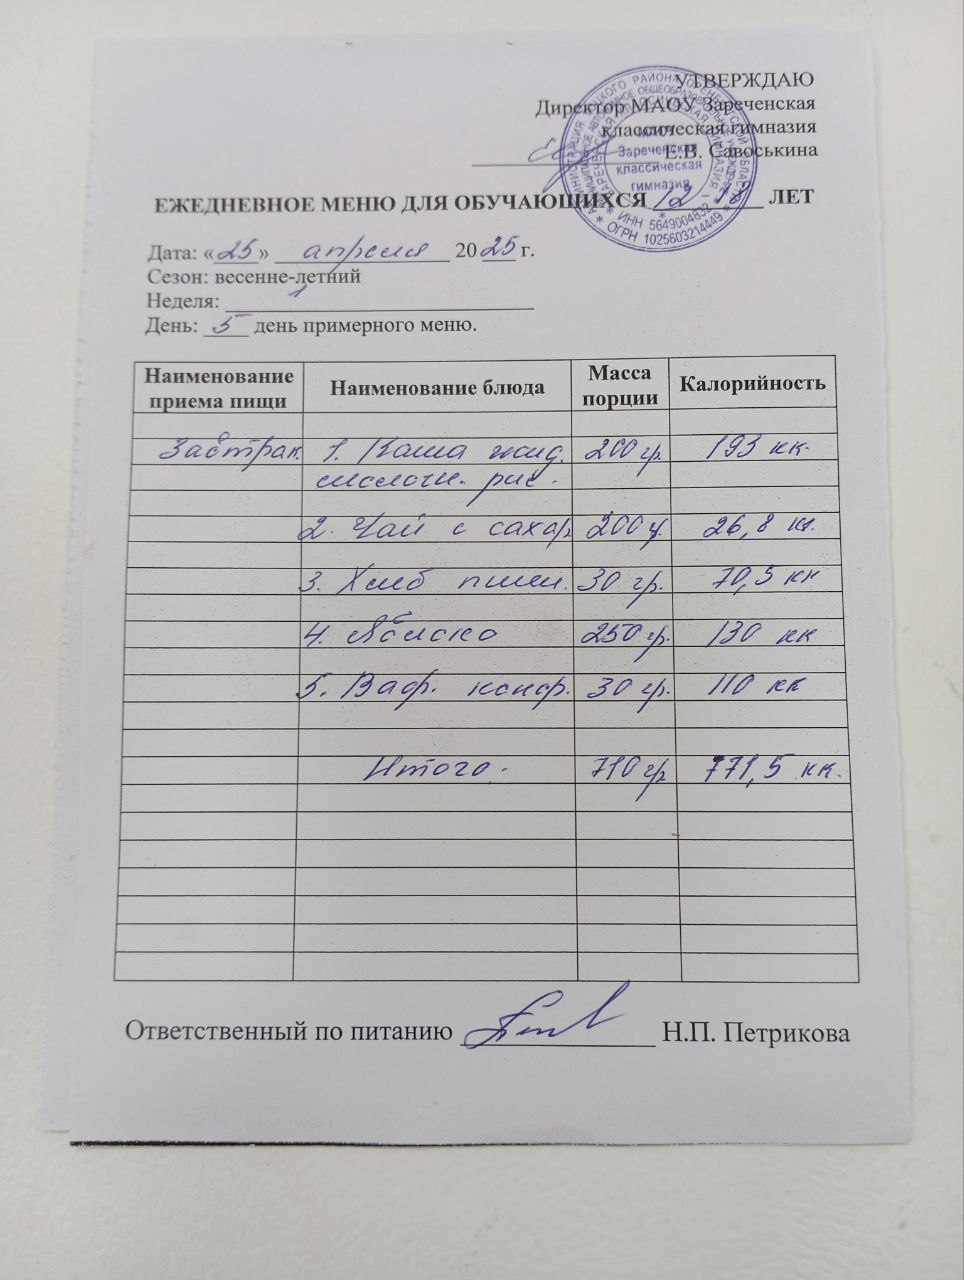 УТВЕРЖДАЮ
Директор МАОУ Зареченская
классическая гимназия
Е.В. Савоськина
МАОУ
Зареченская
классическая
гимназия
* ИНН 5649004832
* ОГРН 1025603214449 *
ЕЖЕДНЕВНОЕ МЕНЮ ДЛЯ ОБУЧАЮЩИХСЯ 12 18 ЛЕТ
Дата: «25» апреля 2025 г.
Сезон: весенне-летний
Неделя: 1
День: 5 день примерного меню.
Наименование приема пищи Наименование блюда Масса порции Калорийность
Завтрак 1. Каша жид. 200 гр. 193 кк.
молочн. рис.
2. Чай с сахар 200 г. 26,8 кк.
3. Хлеб пшен. 30 гр. 70,5 кк
4. Яблоко 250 гр. 130 кк
5. Ваф. конф. 30 гр. 110 кк
Итого. 710 гр 771,5 кк.
Ответственный по питанию Н.П. Петрикова